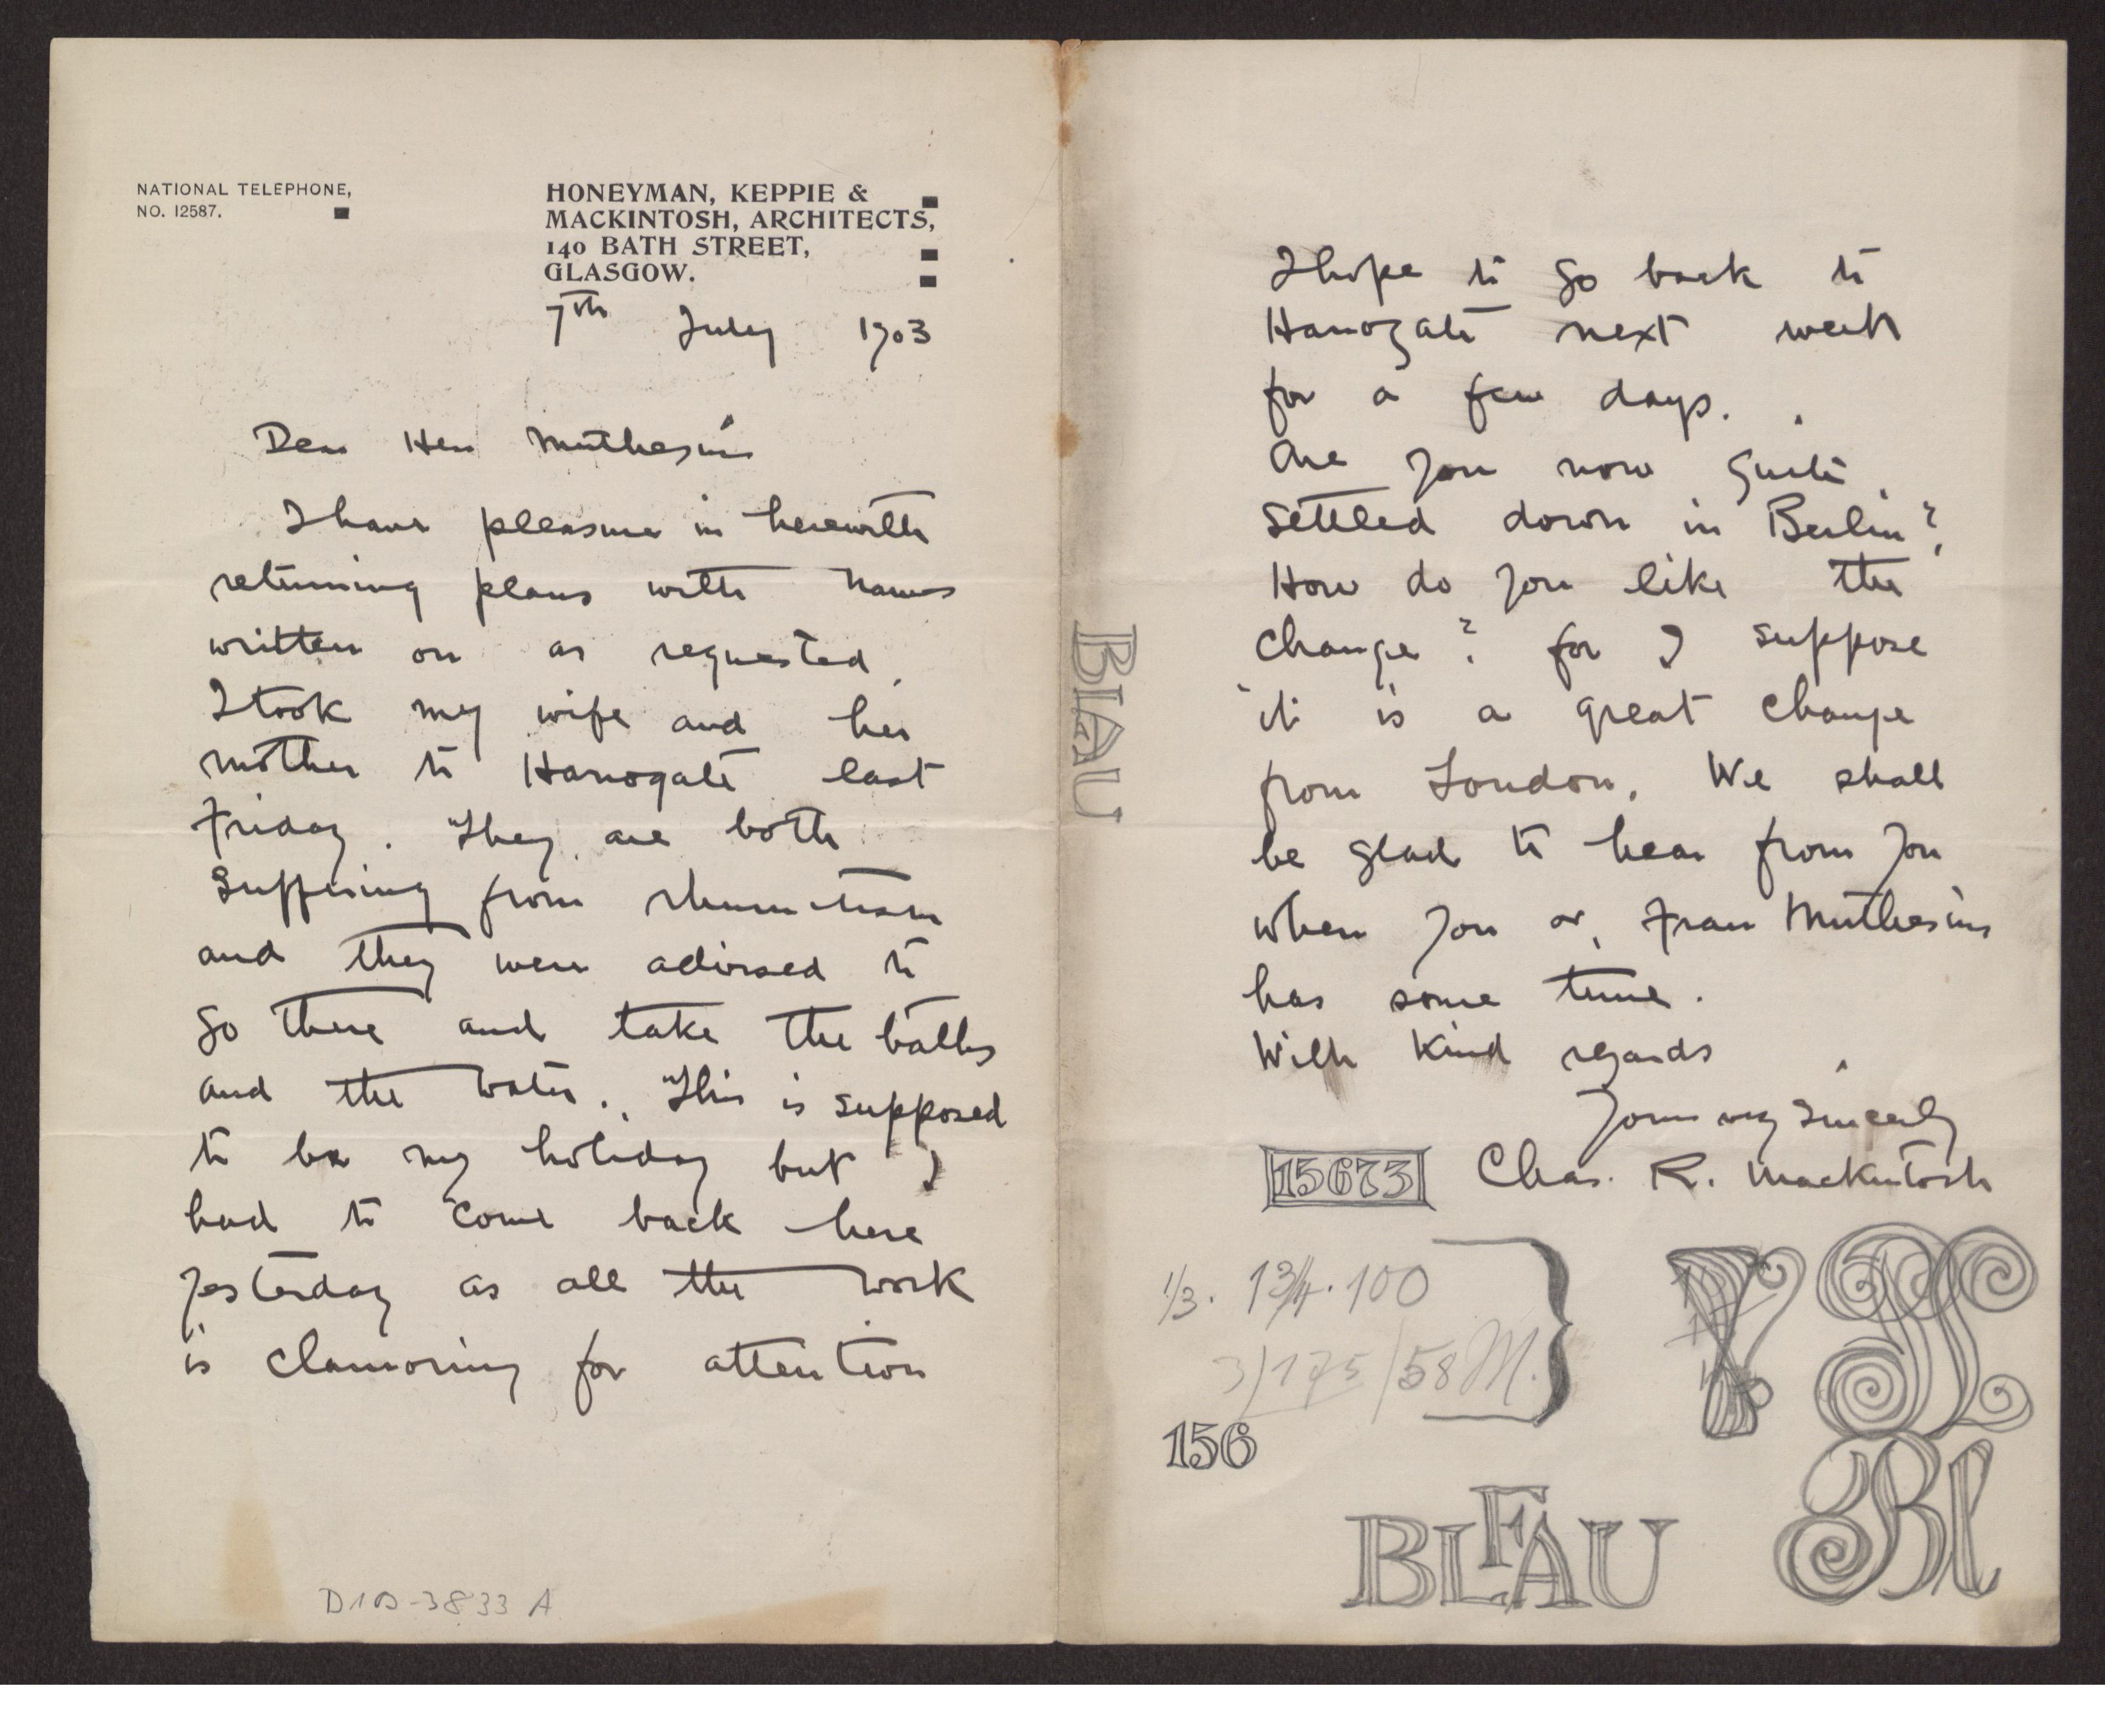 NATIONAL TELEPHONE,
NO. 12587.
HONEYMAN, KEPPIE &
MACKINTOSH, ARCHITECTS,
140 BATH STREET,
GLASGOW.
7th July 1903
Dear Herr Muthesius
I have pleasure in herewith
returning plans with names
written on as requested.
I took my wife and her
mother to Harrogate last
Friday. They are both
suffering from rheumatism
and they were advised to
go there and take the baths
and the water. This is supposed
to be my holiday but I
had to come back here
yesterday as all the work
is clamoring for attention
D10-3833 A
BLAU
I hope to go back to
Harrogate next week
for a few days.
Are you now quite
settled down in Berlin?
How do you like the
change? for I suppose
it is a great change
from London. We shall
be glad to hear from you
when you or Frau Muthesius
has some time.
With kind regards
Yours very sincerely
15673 Chas. R. Mackintosh
1/3. 1 3/4. 100
3)175/58 M.
156
BLFAU
Bl